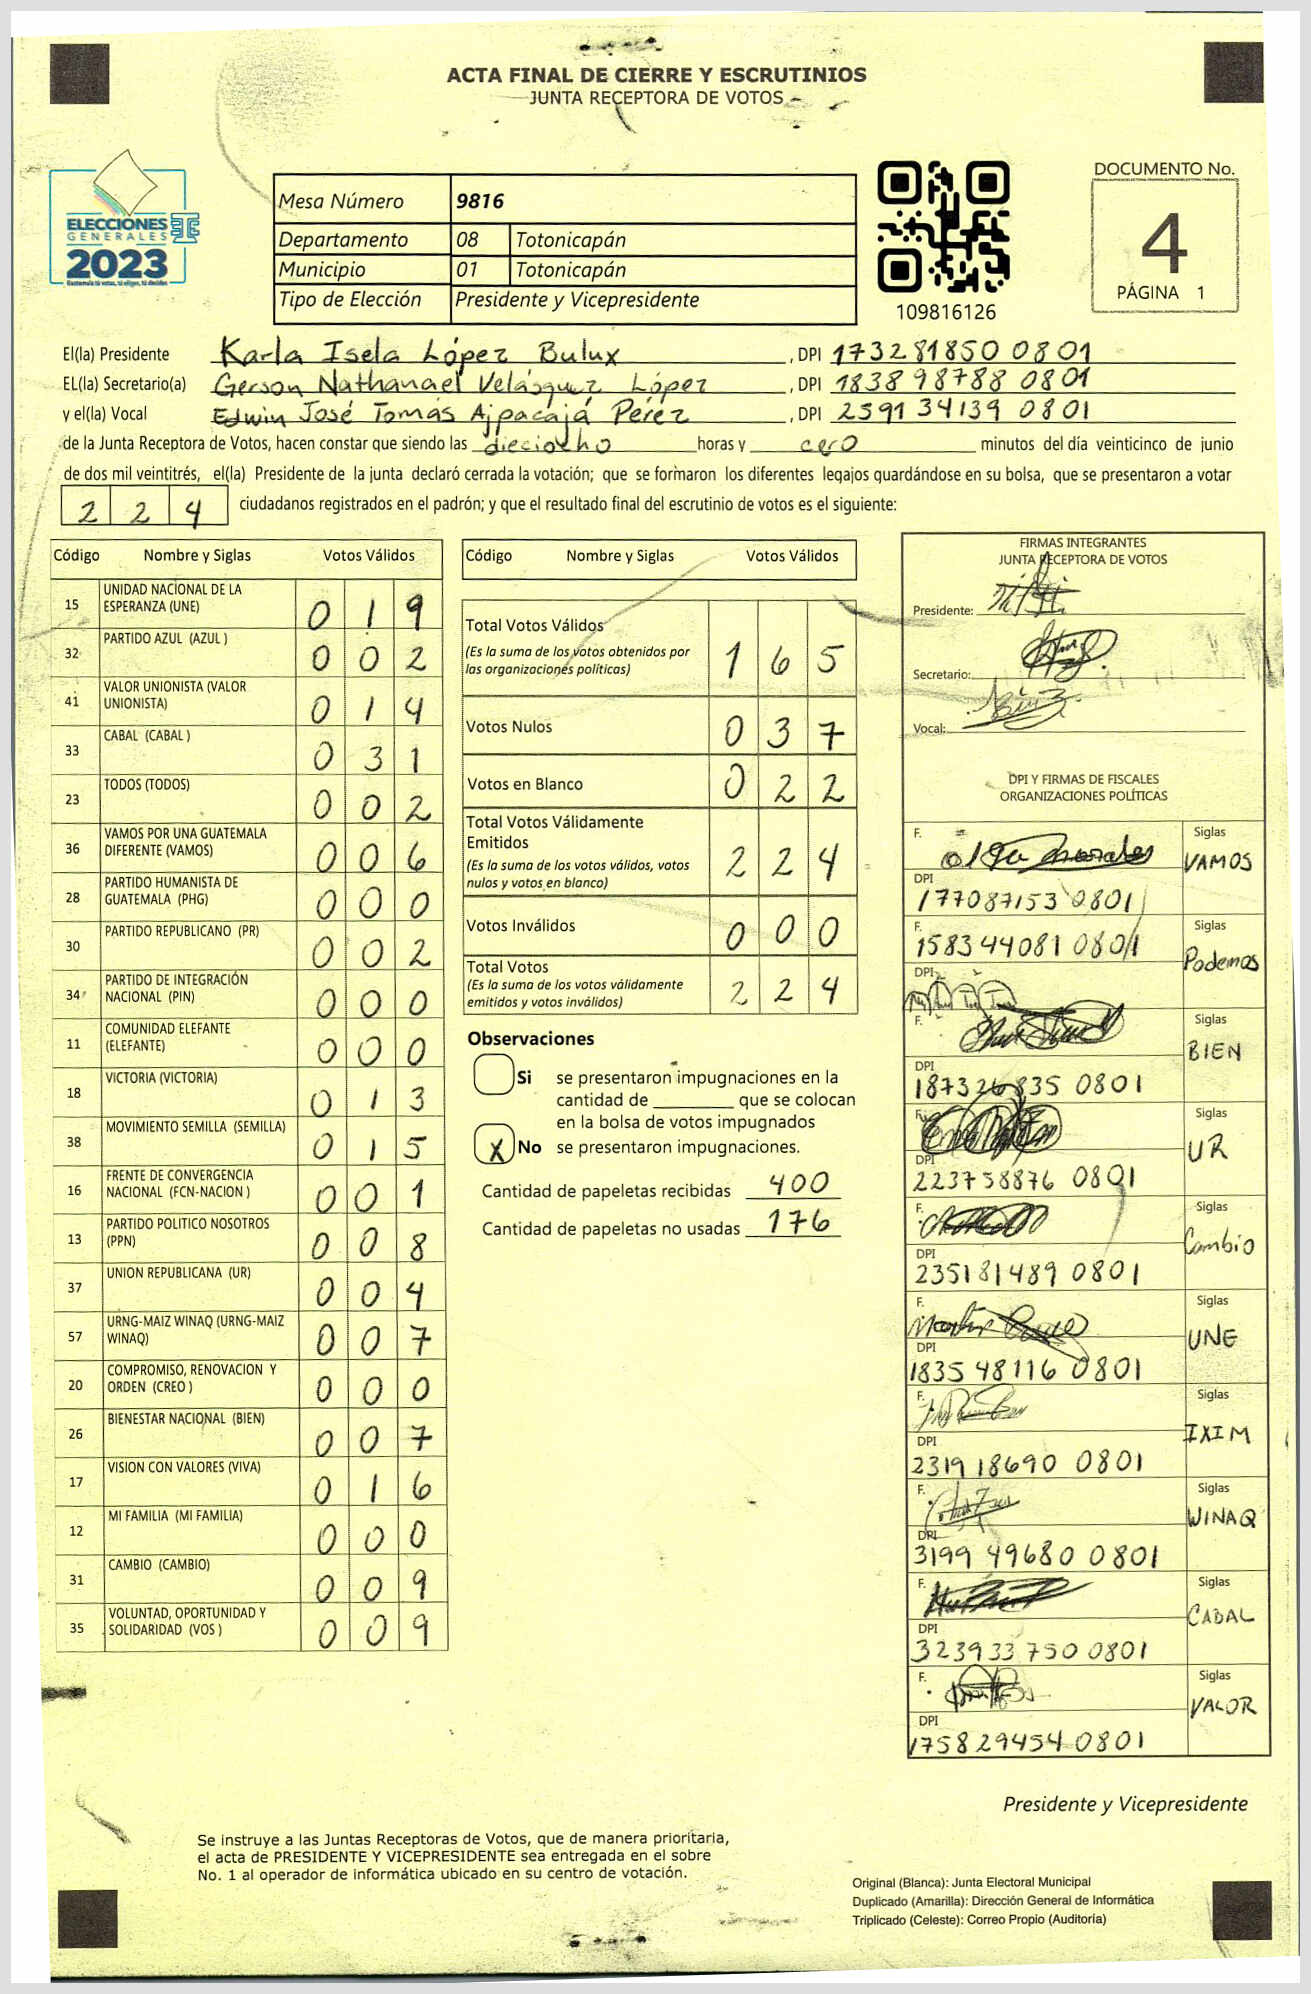 ACTA FINAL DE CIERRE Y ESCRUTINIOS
JUNTA RECEPTORA DE VOTOS
ELECCIONES
GENERALES
2023
Guatemala tú votas, tú eliges, tú decides
Mesa Número 9816
Departamento 08 Totonicapán
Municipio 01 Totonicapán
Tipo de Elección Presidente y Vicepresidente
109816126
DOCUMENTO No.
4
PÁGINA 1
El(la) Presidente Karla Isela López Bulux, DPI 173281850 0801
EL(la) Secretario(a) Gerson Nathanael Velásquez López, DPI 1838 98788 0801
y el(la) Vocal Edwin José Tomás Ajpacajá Pérez, DPI 2591 34139 0801
de la Junta Receptora de Votos, hacen constar que siendo las dieciocho horas y cero minutos del día veinticinco de junio
de dos mil veintitrés, el(la) Presidente de la junta declaró cerrada la votación; que se formaron los diferentes legajos guardándose en su bolsa, que se presentaron a votar
224 ciudadanos registrados en el padrón; y que el resultado final del escrutinio de votos es el siguiente:
Código Nombre y Siglas Votos Válidos
15 UNIDAD NACIONAL DE LA ESPERANZA (UNE) 019
32 PARTIDO AZUL (AZUL ) 002
41 VALOR UNIONISTA (VALOR UNIONISTA) 014
33 CABAL (CABAL ) 031
23 TODOS (TODOS) 002
36 VAMOS POR UNA GUATEMALA DIFERENTE (VAMOS) 006
28 PARTIDO HUMANISTA DE GUATEMALA (PHG) 000
30 PARTIDO REPUBLICANO (PR) 002
34 PARTIDO DE INTEGRACIÓN NACIONAL (PIN) 000
11 COMUNIDAD ELEFANTE (ELEFANTE) 000
18 VICTORIA (VICTORIA) 013
38 MOVIMIENTO SEMILLA (SEMILLA) 015
16 FRENTE DE CONVERGENCIA NACIONAL (FCN-NACION ) 001
13 PARTIDO POLITICO NOSOTROS (PPN) 008
37 UNION REPUBLICANA (UR) 004
57 URNG-MAIZ WINAQ (URNG-MAIZ WINAQ) 007
20 COMPROMISO, RENOVACION Y ORDEN (CREO ) 000
26 BIENESTAR NACIONAL (BIEN) 007
17 VISION CON VALORES (VIVA) 016
12 MI FAMILIA (MI FAMILIA) 000
31 CAMBIO (CAMBIO) 009
35 VOLUNTAD, OPORTUNIDAD Y SOLIDARIDAD (VOS ) 009
Código Nombre y Siglas Votos Válidos
Total Votos Válidos
(Es la suma de los votos obtenidos por
las organizaciones políticas) 165
Votos Nulos 037
Votos en Blanco 022
Total Votos Válidamente
Emitidos
(Es la suma de los votos válidos, votos
nulos y votos en blanco) 224
Votos Inválidos 000
Total Votos
(Es la suma de los votos válidamente
emitidos y votos inválidos) 224
Observaciones
Si se presentaron impugnaciones en la
cantidad de ________ que se colocan
en la bolsa de votos impugnados
X No se presentaron impugnaciones.
Cantidad de papeletas recibidas 400
Cantidad de papeletas no usadas 176
FIRMAS INTEGRANTES
JUNTA RECEPTORA DE VOTOS
Presidente:
Secretario:
Vocal:
DPI Y FIRMAS DE FISCALES
ORGANIZACIONES POLÍTICAS
F. Siglas
VAMOS
DPI
177087153 0801
F. Siglas
158344081 0801 Podemos
DPI
F. Siglas
BIEN
DPI
187326835 0801
F. Siglas
UR
DPI
223758876 0801
F. Siglas
Cambio
DPI
235181489 0801
F. Siglas
UNE
DPI
1835 48116 0801
F. Siglas
IXIM
DPI
2319 18690 0801
F. Siglas
WINAQ
DPI
3199 49680 0801
F. Siglas
CABAL
DPI
323933750 0801
F. Siglas
VALOR
DPI
1758 29454 0801
Presidente y Vicepresidente
Se instruye a las Juntas Receptoras de Votos, que de manera prioritaria,
el acta de PRESIDENTE Y VICEPRESIDENTE sea entregada en el sobre
No. 1 al operador de informática ubicado en su centro de votación.
Original (Blanca): Junta Electoral Municipal
Duplicado (Amarilla): Dirección General de Informática
Triplicado (Celeste): Correo Propio (Auditoría)